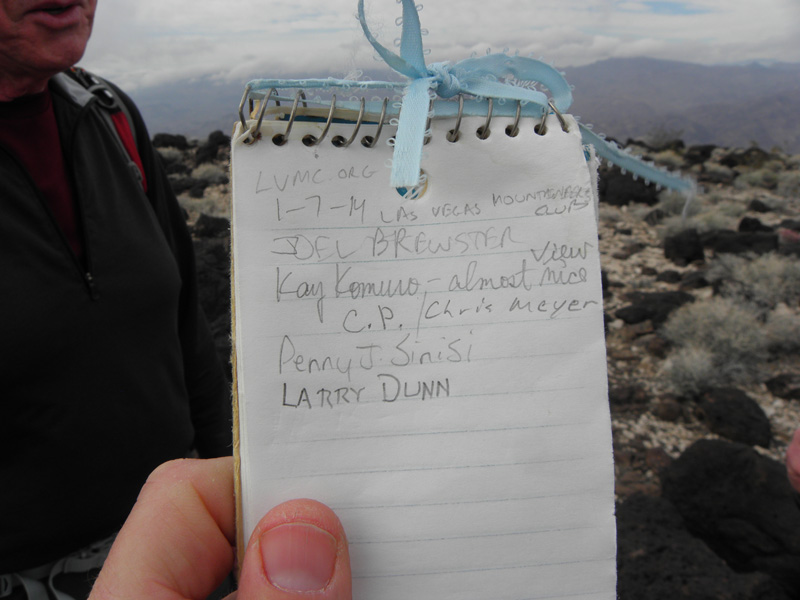 LVMC.ORG
1-7-14 LAS VEGAS MOUNTAINEERS CLUB
JOEL BREWSTER
Kay Komuro - almost nice view
C.P. / Chris Meyer
Penny J. Sinisi
LARRY DUNN